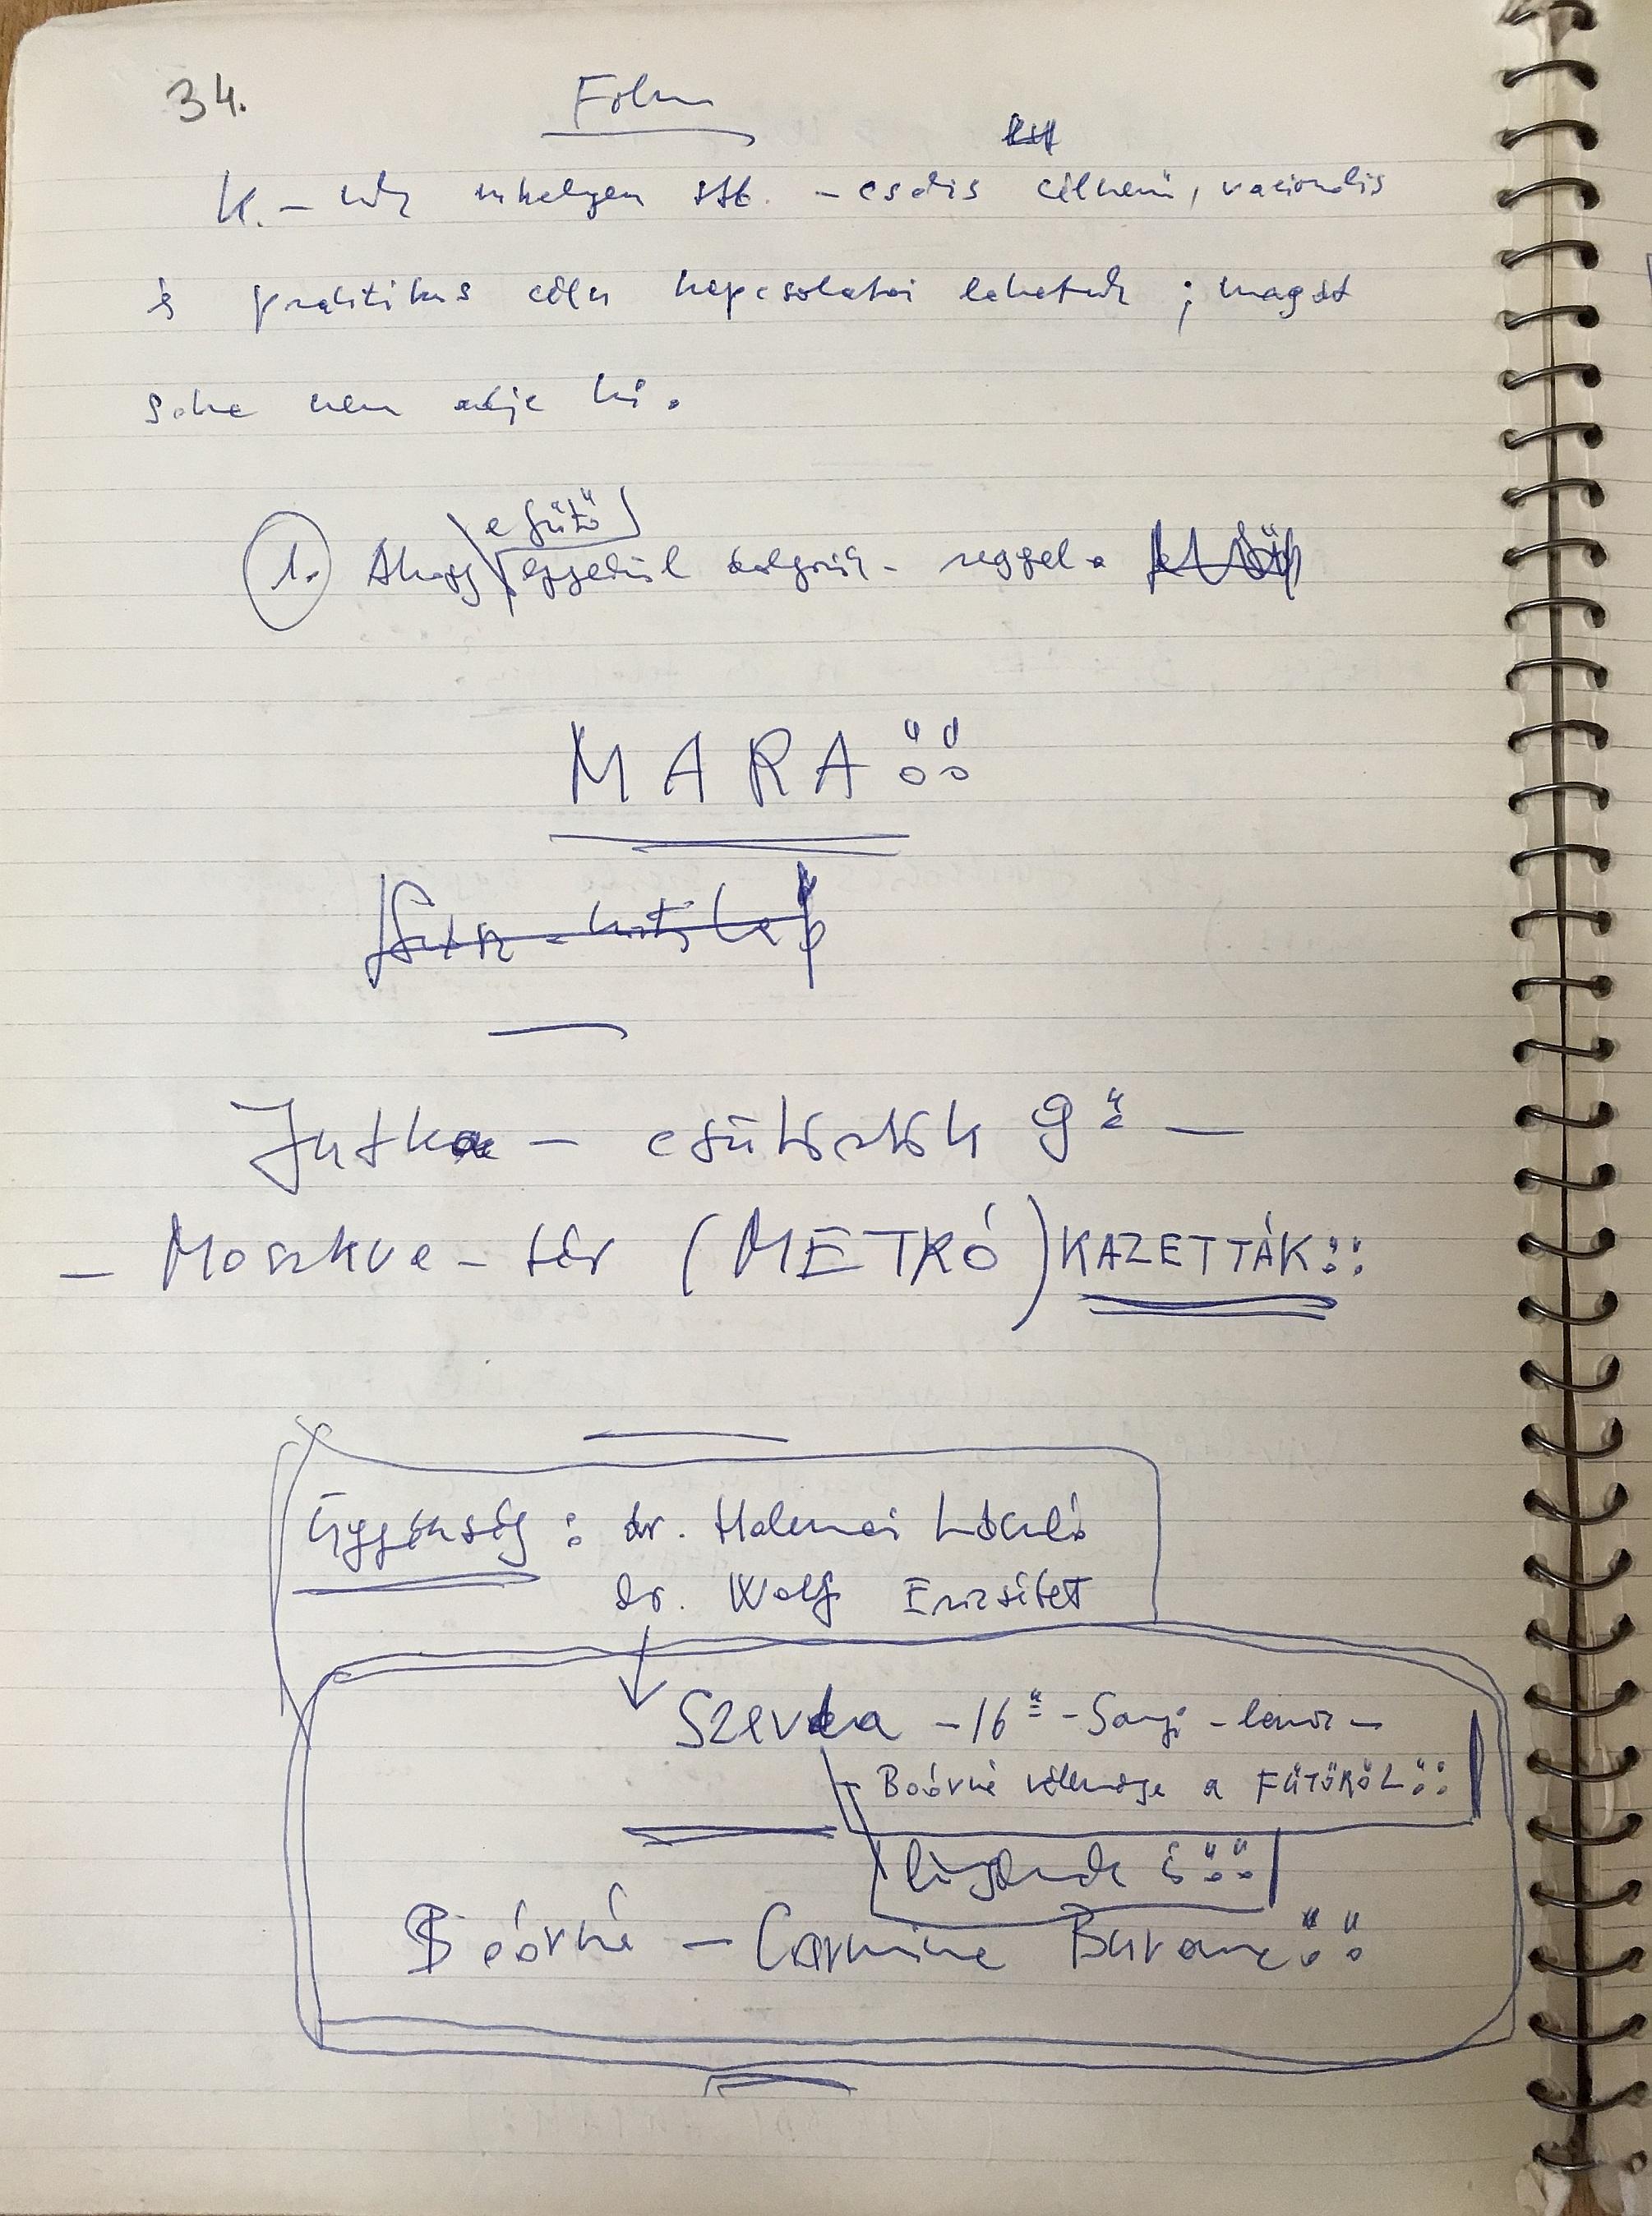 34.
Film
K. – nak mhelyen stb. – csakis célnemű, racionális
és praktikus célú kapcsolatai lehetnek ; magát
soha nem adja ki.
a fűtő
1. Ahogy egyedül dolgozik - reggel a
MARA!!
Jutka – csütörtök 9h –
– Moszkva – tér (METRÓ) KAZETTÁK!!
Ügyészség : dr. Halmai László
dr. Wolf Erzsébet
Szevda – 16h – –
Boórné véleménye a FŰTŐRŐL!!
is!!
Boórné – Carmina Burana!!